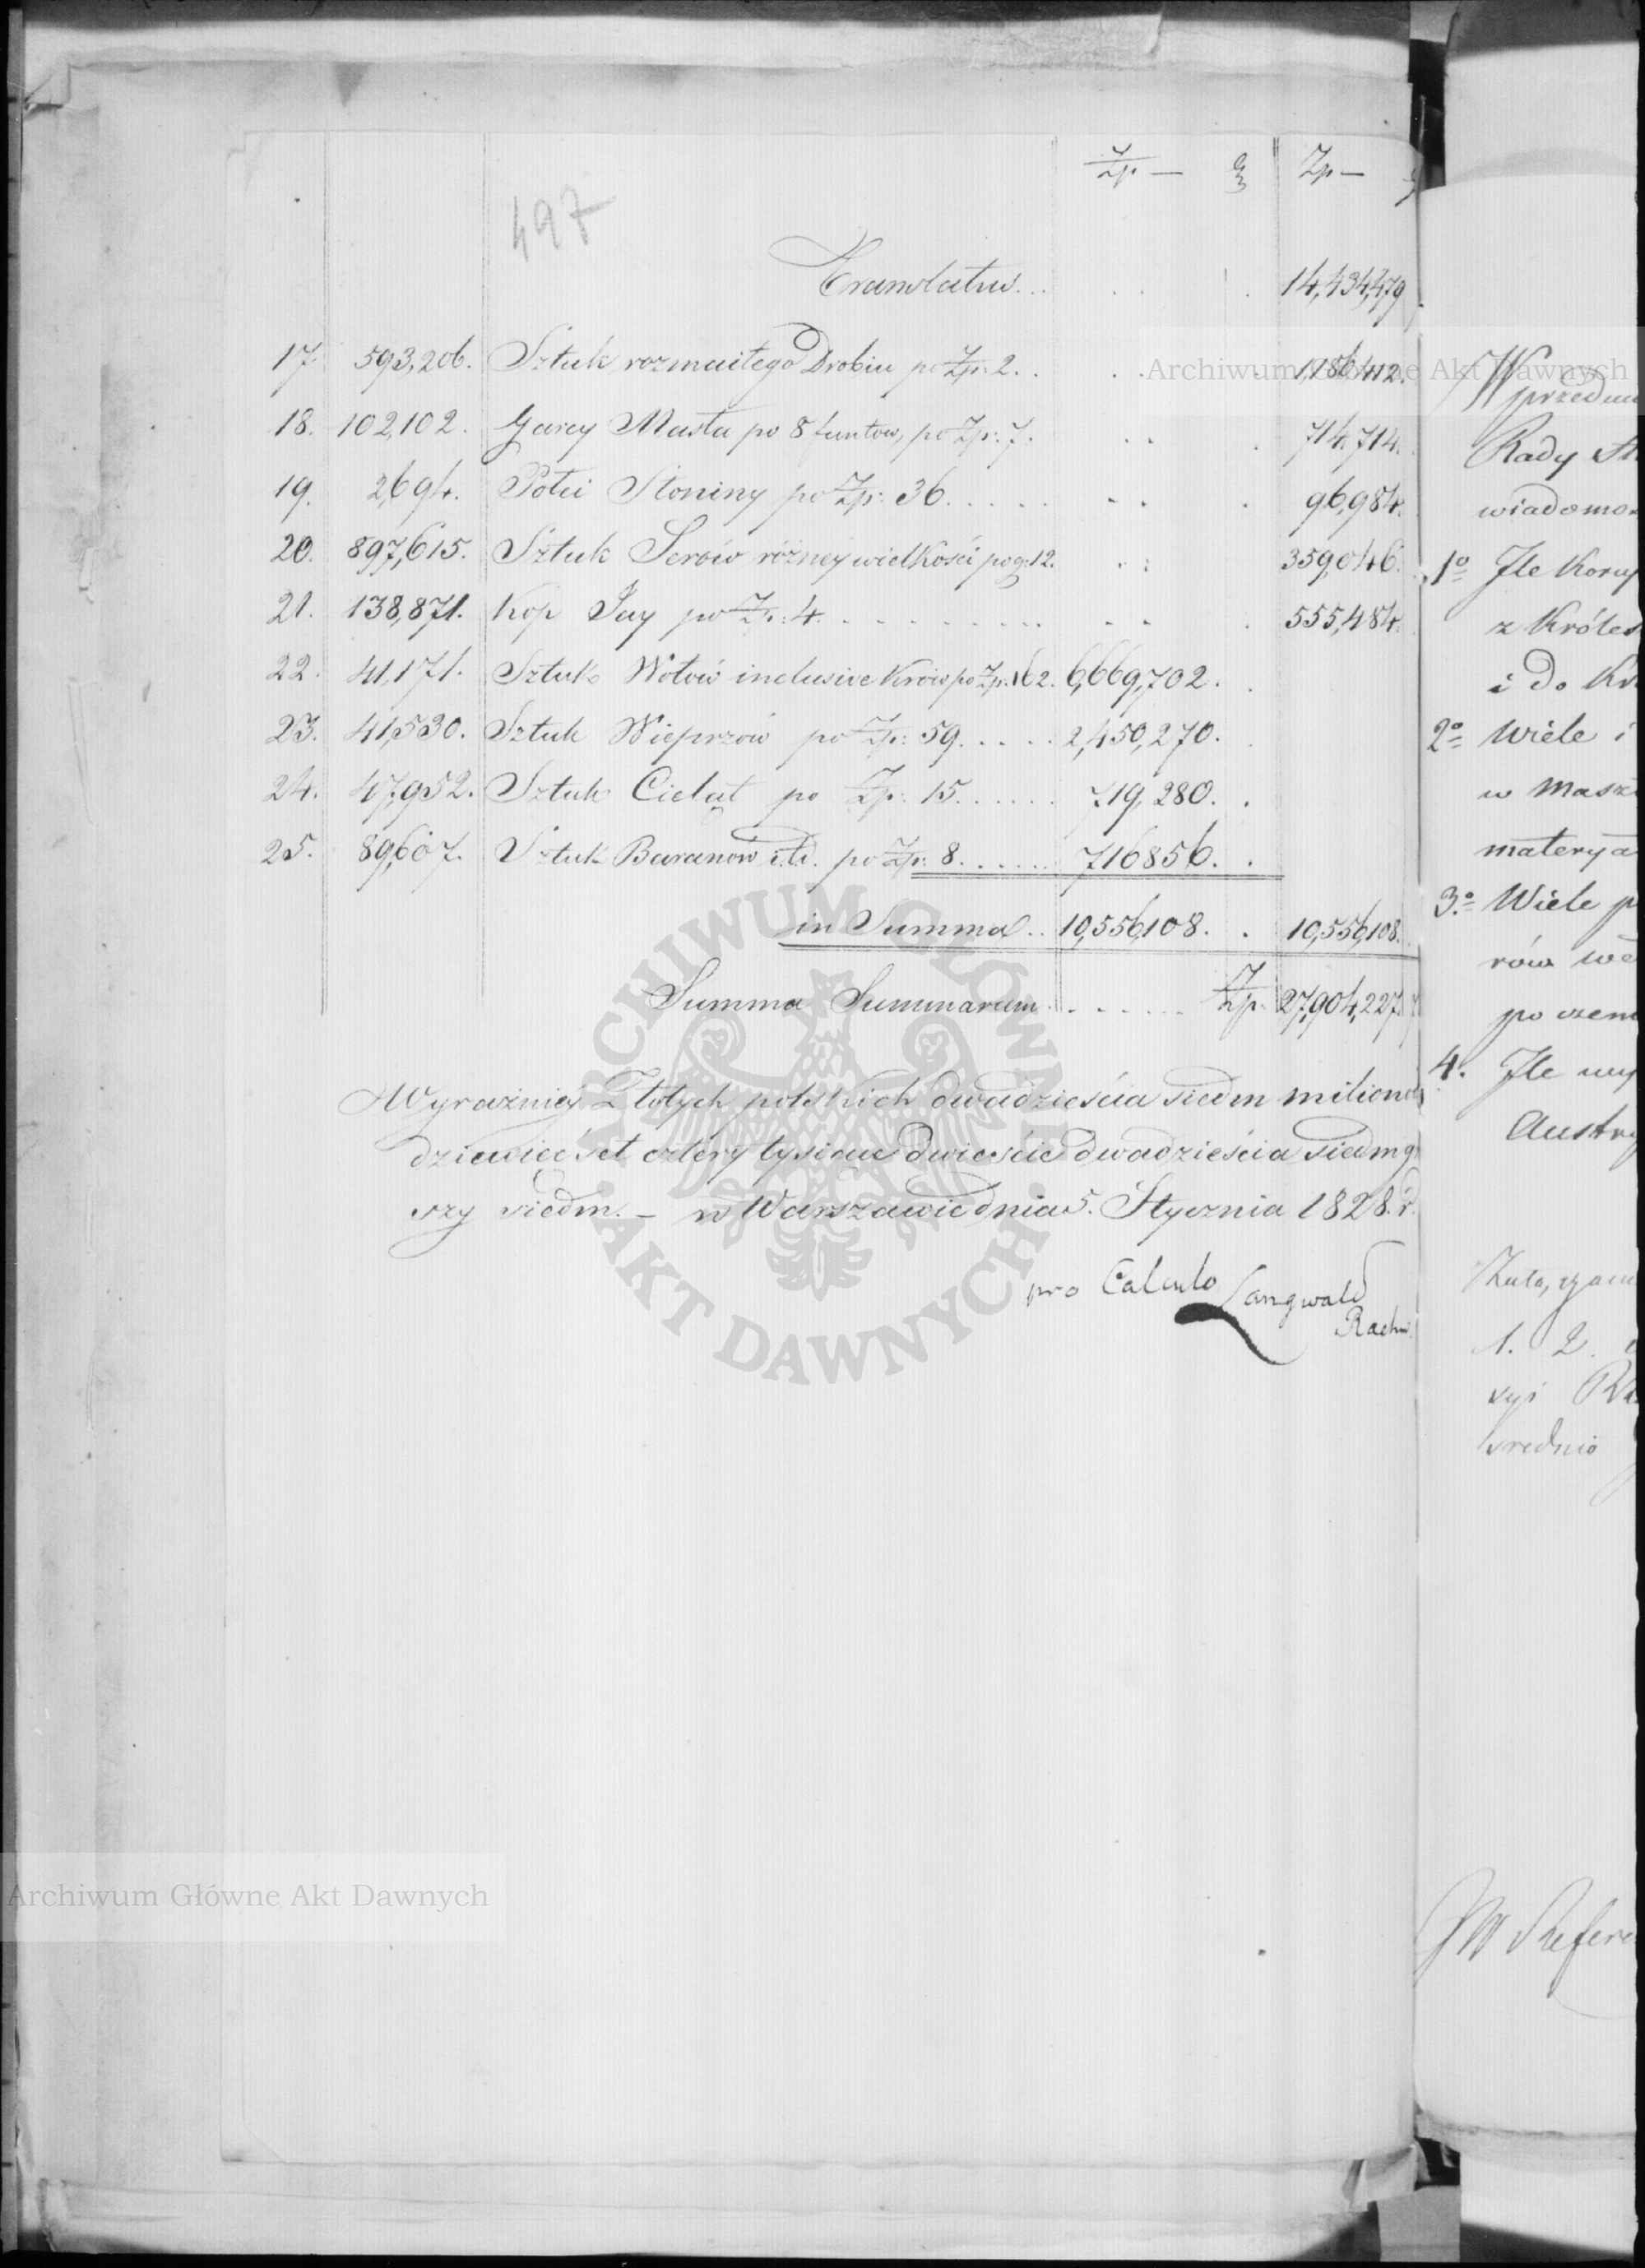 Zp — g Zp —
497
Translatus . . . 14,434,479
17. 593,206. Sztuk rozmaitego Drobiu po Zp: 2. . 1,186,412.
18. 102,102. Garcy Masła po 8 funtów, po Zp: 7. 714,714.
19. 2,694. Połci Słoniny po Zp: 36. . . . . 96,984.
20. 897,615. Sztuk Serów różney wielkości po g: 12. 359,046.
21. 138,871. Kop Jay po Zp: 4. . . . . . . . . 555,484.
22. 41,171. Sztuk Wołów inclusive Krów po Zp: 162. 6,669,702.
23. 41,530. Sztuk Wieprzów po Zp: 59. . . . . 2,450,270.
24. 47,952. Sztuk Cieląt po Zp: 15. . . . . . 719,280.
25. 89,607. Sztuk Baranów i.t.d. po Zp: 8. . . . . . 716856.
in Summa . . 10,556,108. 10,556,108.
Summa Summarum . . . . . . Zp. 27,904,227. 7
Wyraźniéy Złotych polskich dwadzieścia siedm milionów
dziewięćset cztery tysiące dwieście dwadzieścia siedm g
szy siedm. — w Warszawie dnia 5. Stycznia 1828. r.
pro Calculo Langwald
Rachm.
W przedm
Rady St
wiadomo
1o Jle Koru
z Króles
i do Kr
2o Wiele i
w Masz
materya
3o Wiele p
rów we
po czem
4. Jle wy
Austry
1. 2.
syi
średnio
JW Refere
Archiwum Główne Akt Dawnych
Archiwum Główne Akt Dawnych
ARCHIWUM GŁÓWNE
AKT DAWNYCH